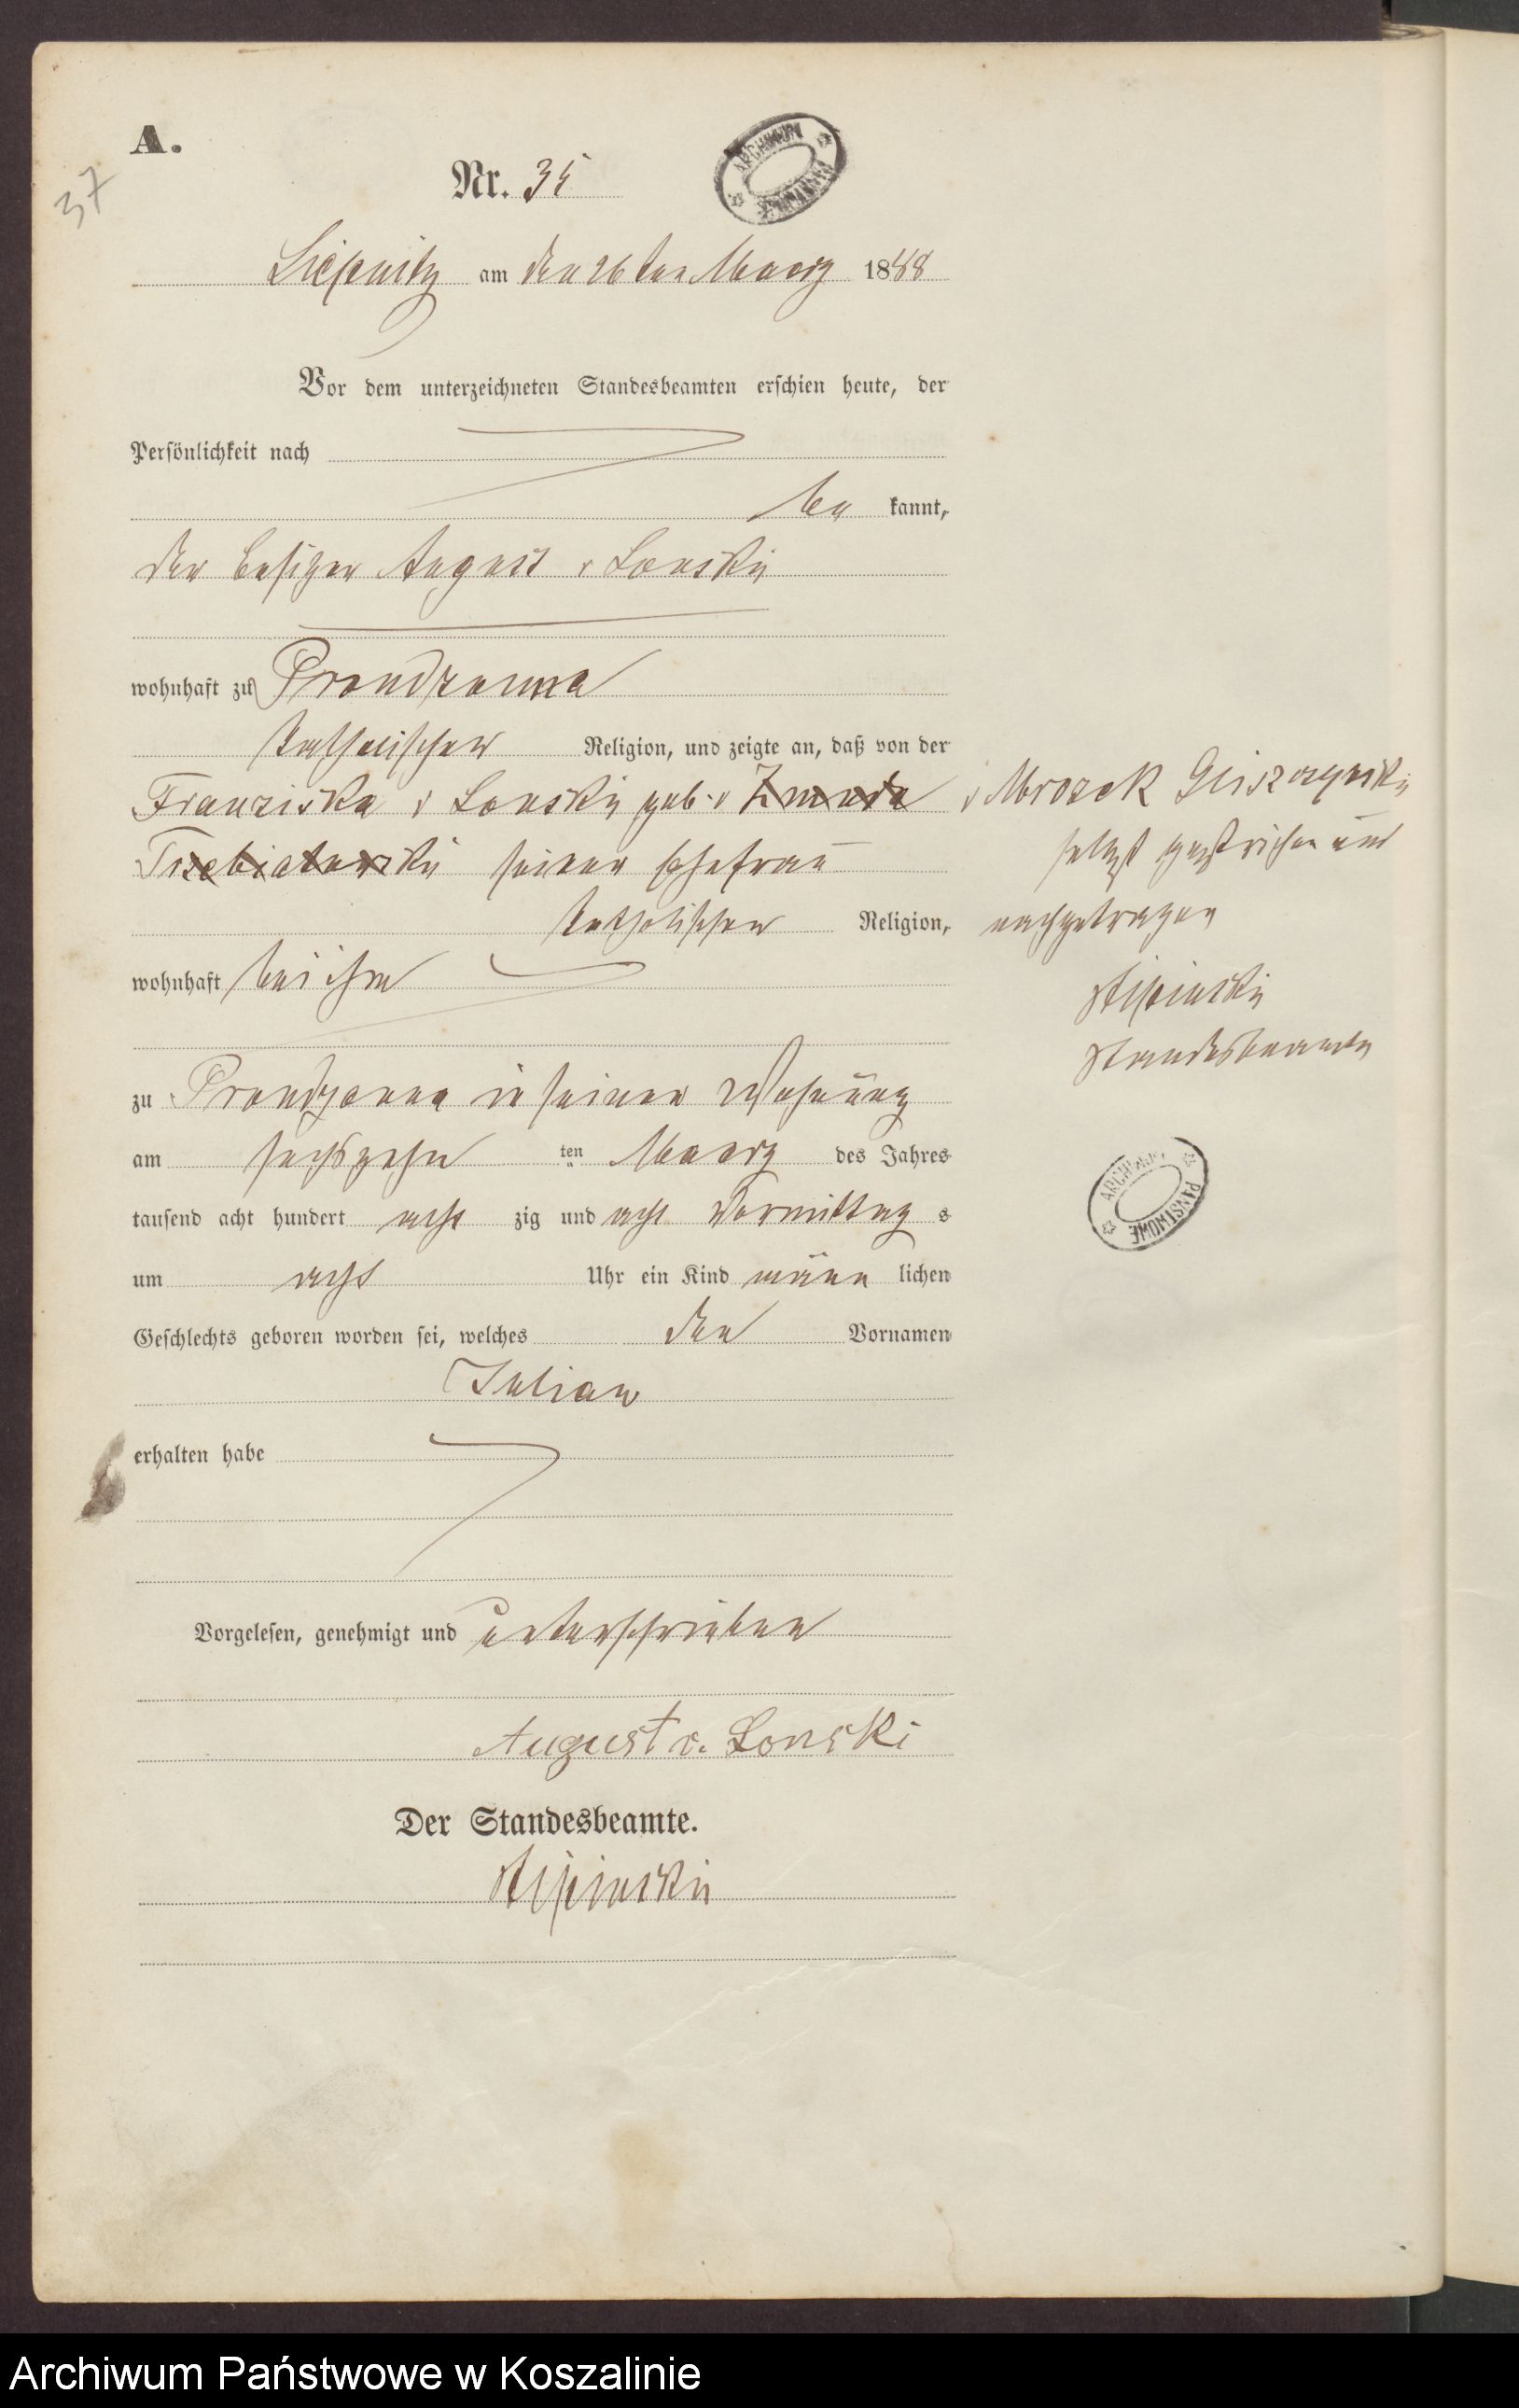 A.
37
Nr. 35
Liepnitz am den 26 ten Maerz 1888
Vor dem unterzeichneten Standesbeamten erschien heute, der
Persönlichkeit nach
be kannt,
der Besitzer August v Lonski
wohnhaft zu Prondzonna
katholischer Religion, und zeigte an, daß von der
Franziska v Lonski geb. v Zmuda
Trzebiatowski seiner Ehefrau
katholischer Religion,
wohnhaft bei ihm
zu Prondzonna in seiner Wohnung
am sechszehn ten Maerz des Jahres
tausend acht hundert acht zig und acht Vormittag s
um acht Uhr ein Kind männ lichen
Geschlechts geboren worden sei, welches den Vornamen
Julian
erhalten habe
Vorgelesen, genehmigt und unterschrieben
August v. Lonski
Der Standesbeamte.
v Mrozek
gestrichen und
nachgetragen
Standesbeamte
ARCHIWUM PAŃSTWOWE
ARCHIWUM PAŃSTWOWE
Archiwum Państwowe w Koszalinie